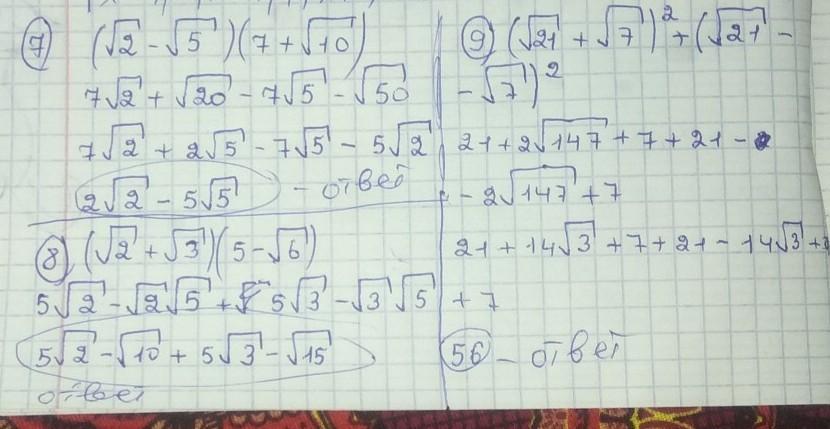 7) (√2 - √5)(7 + √10)
7√2 + √20 - 7√5 - √50
7√2 + 2√5 - 7√5 - 5√2
2√2 - 5√5 - ответ
8) (√2 + √3)(5 - √6)
5√2 - √2√5 + 5√3 - √3√5
5√2 - √10 + 5√3 - √15
ответ
9) (√21 + √7)² + (√21 -
- √7)²
21 + 2√147 + 7 + 21 -
- 2√147 + 7
21 + 14√3 + 7 + 21 - 14√3 +
+ 7
56 - ответ